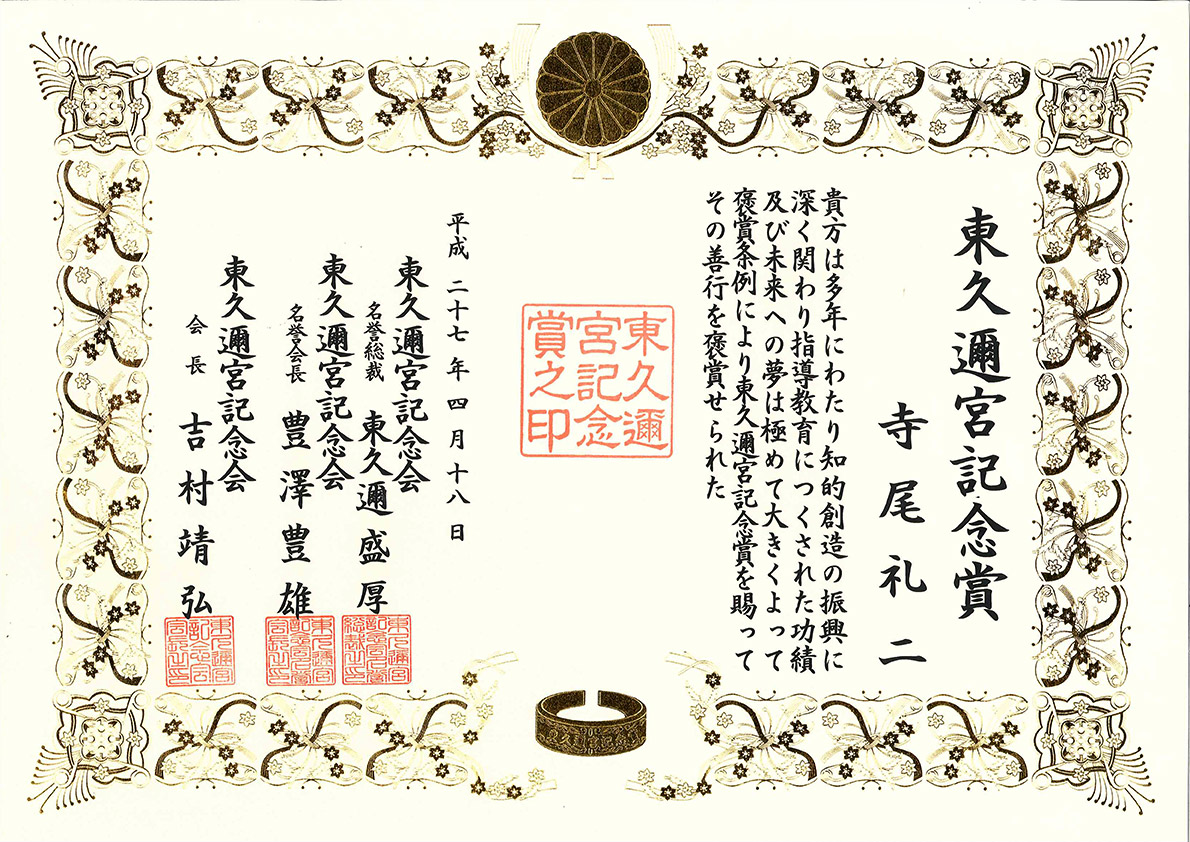 東久邇宮記念賞
寺尾礼二
貴方は多年にわたり知的創造の振興に
深く関わり指導教育につくされた功績
及び未来への夢は極めて大きくよって
褒賞条例により東久邇宮記念賞を賜って
その善行を褒賞せられた
東久邇
宮記念
賞之印
平成二十七年四月十八日
東久邇宮記念会
名誉総裁 東久邇盛厚
東久邇宮記念会
名誉会長 豊澤豊雄
東久邇宮記念会
会長 吉村靖弘